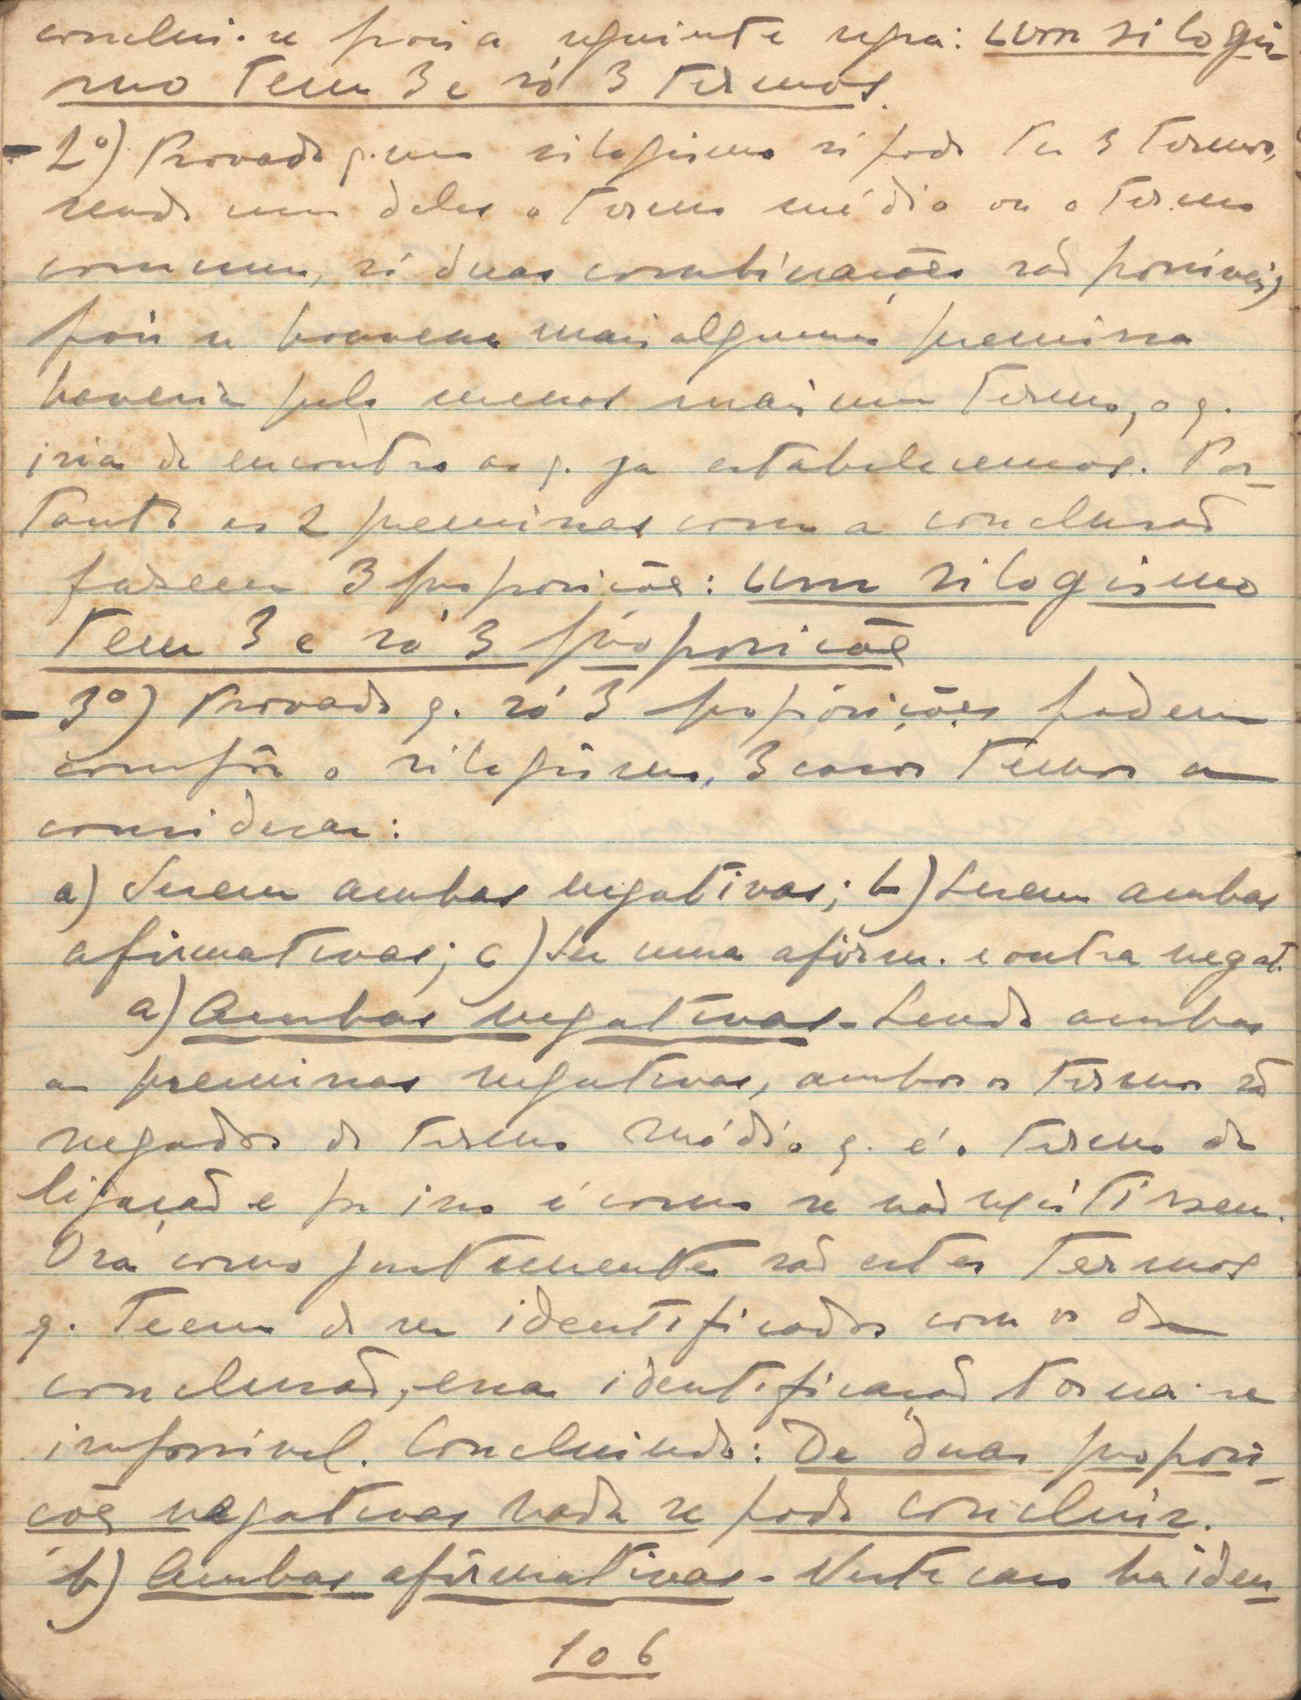 conclui-se pois a seguinte regra: um silogis-
mo tem 3 e só 3 termos.
- 2º) Provado q. um silogismo só pode ter 3 termos,
sendo um deles o termo médio ou o termo
commum, só duas combinações são possiveis,
pois se houvesse mais alguma premissa
haveria pelo menos mais um termo, o q.
iria de encontro ao q. ja estabelecemos. Por-
tanto as 2 premissas com a conclusão
fazem 3 proposicões: um silogismo
tem 3 e só 3 proposicões
- 3º) Provado q. só 3 proposições podem
compôr o silogismo, 3 casos temos a
considerar:
a) Serem ambas negativas; b) Serem ambas
afirmativas; c) Ser uma afirm. e outra negat.
a) Ambas negativas - Sendo ambas
as premissas negativas, ambos os termos são
negados do termo médio q. é o termo de
ligação e por isso é como se não existissem.
Ora como justamente são estes termos
q. teem de ser identificados com os da
conclusão, essa identificação torna-se
impossivel. Concluindo: De duas proposi-
cões negativas nada se pode concluir.
b) Ambas afirmativas - Neste caso ha iden-
106